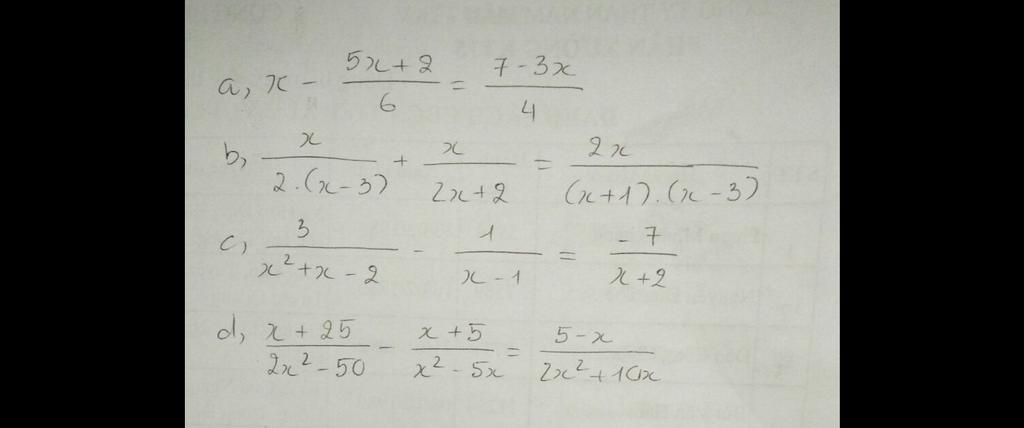 a, x - (5x+2)/6 = (7-3x)/4
b, x/(2.(x-3)) + x/(2x+2) = 2x/((x+1).(x-3))
c, 3/(x²+x-2) - 1/(x-1) = -7/(x+2)
d, (x+25)/(2x²-50) - (x+5)/(x²-5x) = (5-x)/(2x²+10x)